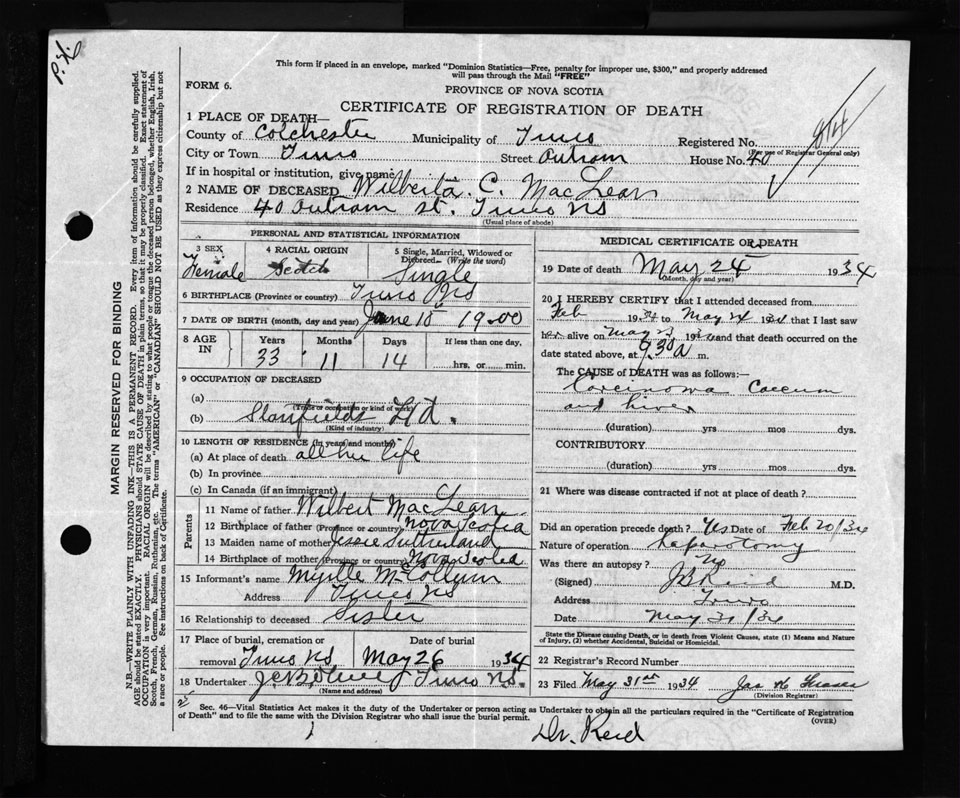 P.X.
This form if placed in an envelope, marked "Dominion Statistics—Free, penalty for improper use, $300," and properly addressed
will pass through the Mail "FREE"
FORM 6.
PROVINCE OF NOVA SCOTIA
CERTIFICATE OF REGISTRATION OF DEATH
1 PLACE OF DEATH—
County of Colchester Municipality of Truro Registered No. 814
(For use of Registrar General only)
City or Town Truro Street Outram House No. 40
If in hospital or institution, give name
2 NAME OF DECEASED Wilberta C. MacLean
Residence 40 Outram St. Truro NS
(Usual place of abode)
PERSONAL AND STATISTICAL INFORMATION
3 SEX 4 RACIAL ORIGIN 5 Single, Married, Widowed or
Divorced— (Write the word)
Female Scotch Single
6 BIRTHPLACE (Province or country) Truro NS
7 DATE OF BIRTH (month, day and year) June 10 1900
8 AGE IN Years Months Days If less than one day,
33 11 14 hrs. or min.
9 OCCUPATION OF DECEASED
(a)
(Trade or occupation or kind of work)
(b) Stanfields Ltd.
(Kind of industry)
10 LENGTH OF RESIDENCE (in years and months)
(a) At place of death all her life
(b) In province
(c) In Canada (if an immigrant)
Parents
11 Name of father Wilbert MacLean
12 Birthplace of father (Province or country) Nova Scotia
13 Maiden name of mother Jessie Sutherland
14 Birthplace of mother (Province or country) Nova Scotia
15 Informant's name Myrtle McCollum
Address Truro NS
16 Relationship to deceased Sister
17 Place of burial, cremation or Date of burial
removal Truro NS May 26 1934
18 Undertaker Truro NS.
(Name and address)
MEDICAL CERTIFICATE OF DEATH
19 Date of death May 24 1934
(Month, day and year)
20 I HEREBY CERTIFY that I attended deceased from
Feb 1934 to May 24 1934 that I last saw
her alive on May 1934 and that death occurred on the
date stated above, at 9.30 a m.
The CAUSE of DEATH was as follows:—
Carcinoma Caecum
and liver
(duration) yrs mos dys.
CONTRIBUTORY
(duration) yrs mos dys.
21 Where was disease contracted if not at place of death?
Did an operation precede death? Yes Date of Feb 20/34
Nature of operation Laparotomy
Was there an autopsy? No
(Signed) J B Reid M.D.
Address Truro
Date May 31/34
State the Disease causing Death, or in death from Violent Causes, state (1) Means and Nature
of Injury, (2) whether Accidental, Suicidal or Homicidal.
22 Registrar's Record Number
23 Filed May 31st 1934 Jas
(Division Registrar)
Sec. 46—Vital Statistics Act makes it the duty of the Undertaker or person acting as Undertaker to obtain all the particulars required in the "Certificate of Registration
of Death" and to file the same with the Division Registrar who shall issue the burial permit. (OVER)
Dr. Reid
MARGIN RESERVED FOR BINDING
N.B.—WRITE PLAINLY WITH UNFADING INK—THIS IS A PERMANENT RECORD. Every item of information should be carefully supplied.
AGE should be stated EXACTLY. PHYSICIANS should STATE CAUSE OF DEATH in plain terms, so that it may be properly classified. Exact statement of
OCCUPATION is very important. RACIAL ORIGIN will be described by stating to what people or tongue the deceased person belonged, whether English, Irish,
Scotch, French, German, Russian, Ruthenian, etc. The terms "AMERICAN" or "CANADIAN" SHOULD NOT BE USED as they express citizenship but not
a race or people. See instructions on back of Certificate.